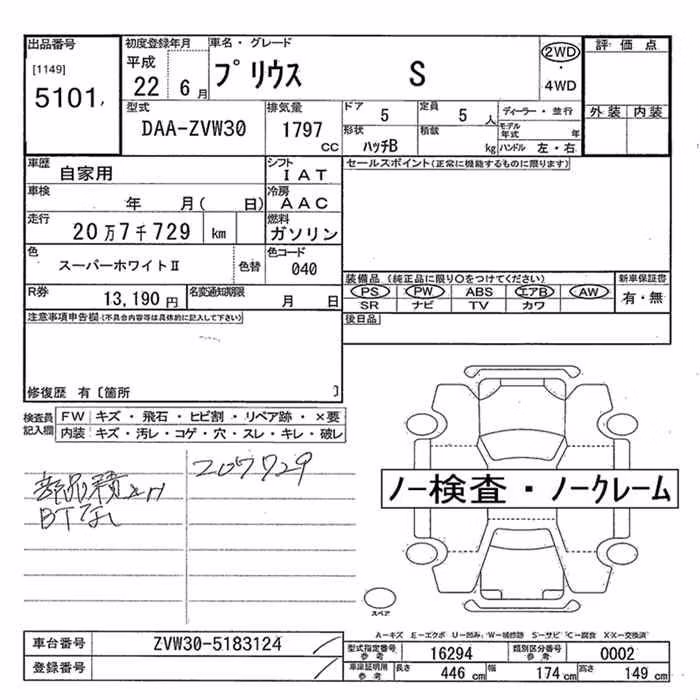 出品番号 初度登録年月 車名・グレード 評価点
[1149] 平成 2WD
5101, 22 6月 プリウス S ・
4WD
型式 排気量 ドア 定員 ディーラー・並行 外装 内装
DAA-ZVW30 1797 cc 5 5人 モデル年式 年
形状 積載 kg ハンドル 左・右
ハッチB
車歴 自家用 シフト IAT セールスポイント(正常に機能するものに限ります)
車検 年 月( 日) 冷房 AAC
走行 20万7千729 km 燃料 ガソリン
色 スーパーホワイトⅡ 色替 色コード 040
装備品(純正品に限り○をつけてください) 新車保証書
R券 13,190円 名変通知期限 月 日 PS PW ABS エアB AW 有・無
SR ナビ TV カワ
注意事項申告欄(不具合内容等は具体的に記入して下さい) 後日品
修復歴 有〔箇所 〕
検査員記入欄 FW キズ・飛石・ヒビ割・リペア跡・×要
内装 キズ・汚レ・コゲ・穴・スレ・キレ・破レ
207729
部品積
BTなし
ノー検査・ノークレーム
スペア
A−キズ E−エクボ U−凹み W−補修跡 S−サビ C−腐食 X X−交換済
車台番号 ZVW30-5183124
登録番号
型式指定番号 参考 16294 類別区分番号 参考 0002
車庫証明用 参考 長さ 446 cm 幅 174 cm 高さ 149 cm